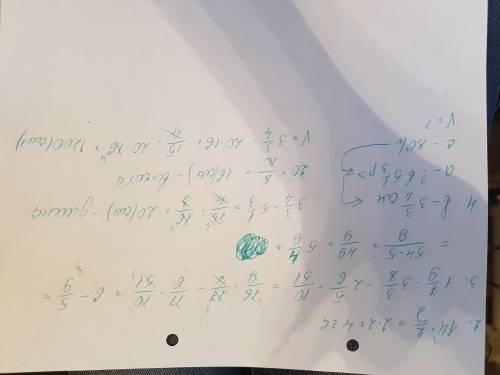 2. 14 · 2/7 = 2 · 2 = 4 кг
3. 1 7/9 · 3 3/8 - 2 5/6 · 10/51 = 16/9 · 27/8 - 17/6 · 10/51 = 6 - 5/9 =
= 54-5/9 = 49/9 = 5 4/9
4. b - 3 3/4 см
a - ? в 5 1/3 р >
c - 80%
V = ?
3 3/4 · 5 1/3 = 15/4 · 16/3 = 20 (см) - длина
20 · 8/10 = 16 (см) - высота
V = 3 3/4 · 20 · 16 = 15/4 · 20 · 16 = 1200 (см)